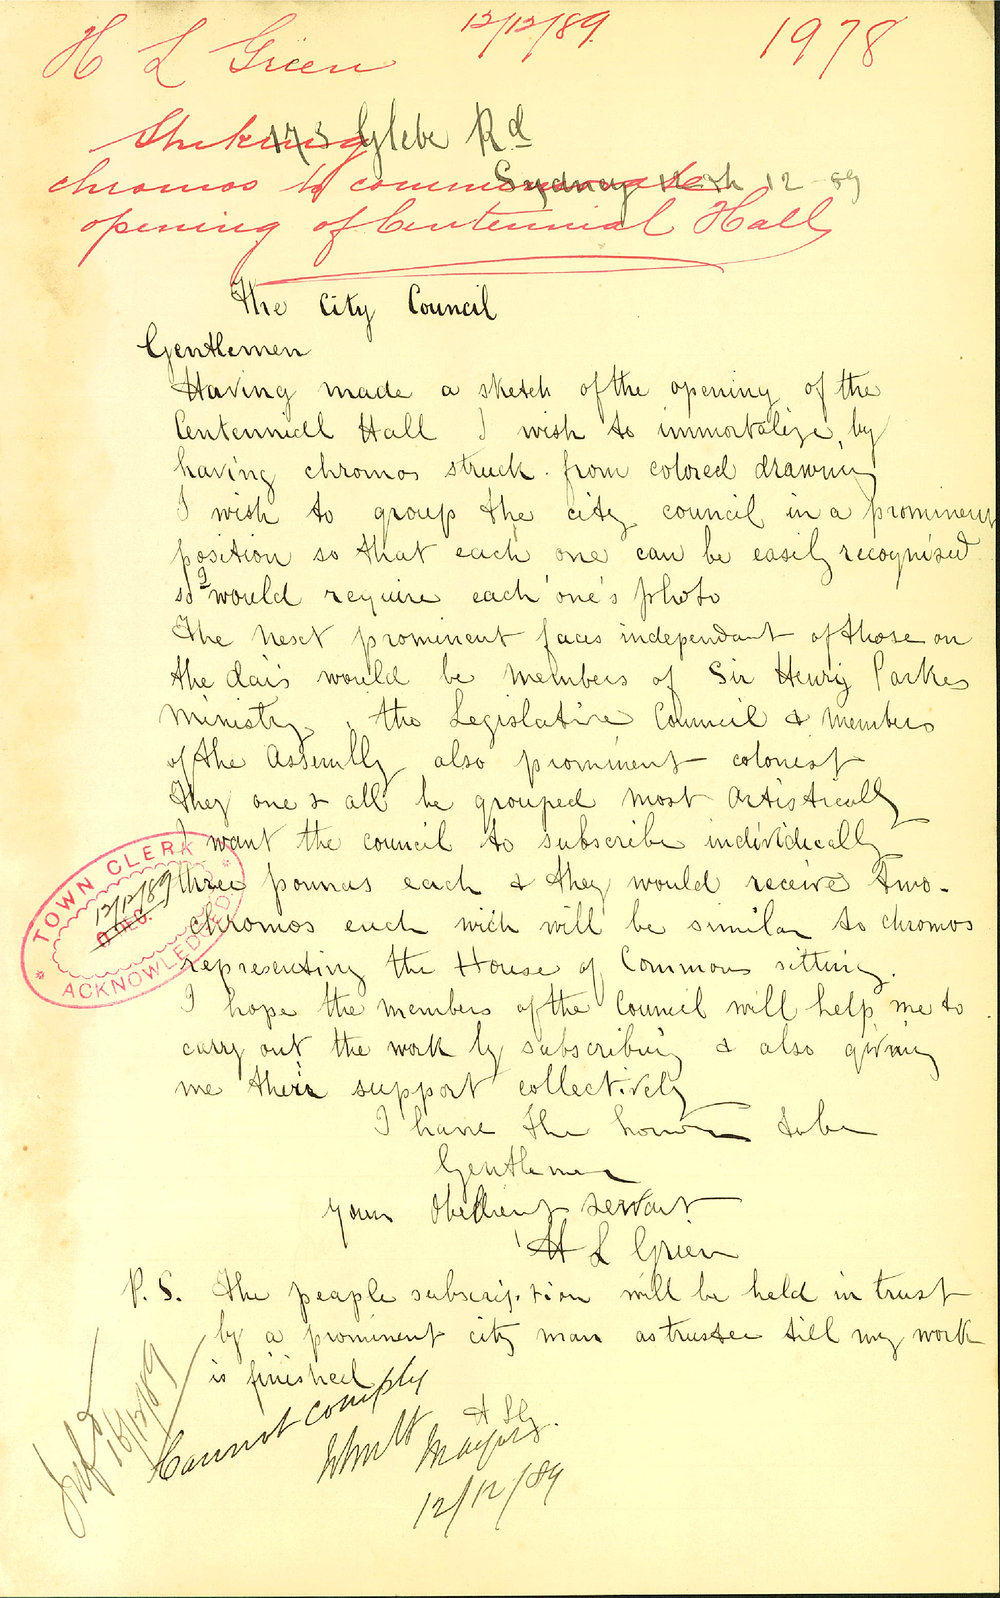 12/12/89.
H L Green
1978
Striking
173 Glebe Rd
chromos to commemorate
Sydney 12 - 89
opening of Centennial Hall
The City Council
Gentlemen
Having made a sketch of the opening of the
Centenniall Hall I wish to immortalize, by
having chromos struck from colored drawing
I wish to group the city council in a prominent
position so that each one can be easily recognised
so I would require each one's photo
The next prominent faces independant of those on
the dais would be members of Sir Henry Parkes
Ministry, the Legislative Council & members
of the Assembly also prominent colonist
They one & all be grouped most artistically
I want the council to subscribe individically
three pounds each & they would receive two-
chromos each wich will be similar to chromos
representing the House of Commons sitting.
I hope the members of the Council will help me to
carry out the work by subscribing & also giving
me their support collectively
I have the honor to be
Gentlemen
your Obedient servant
H L Green
P.S. The people subscription will be held in trust
by a prominent city man as trustee till my work
is finished
TOWN CLERK
12/12/89
ACKNOWLEDGED
Cannot comply
Mayor
12/12/89
Inf d
16/12/89